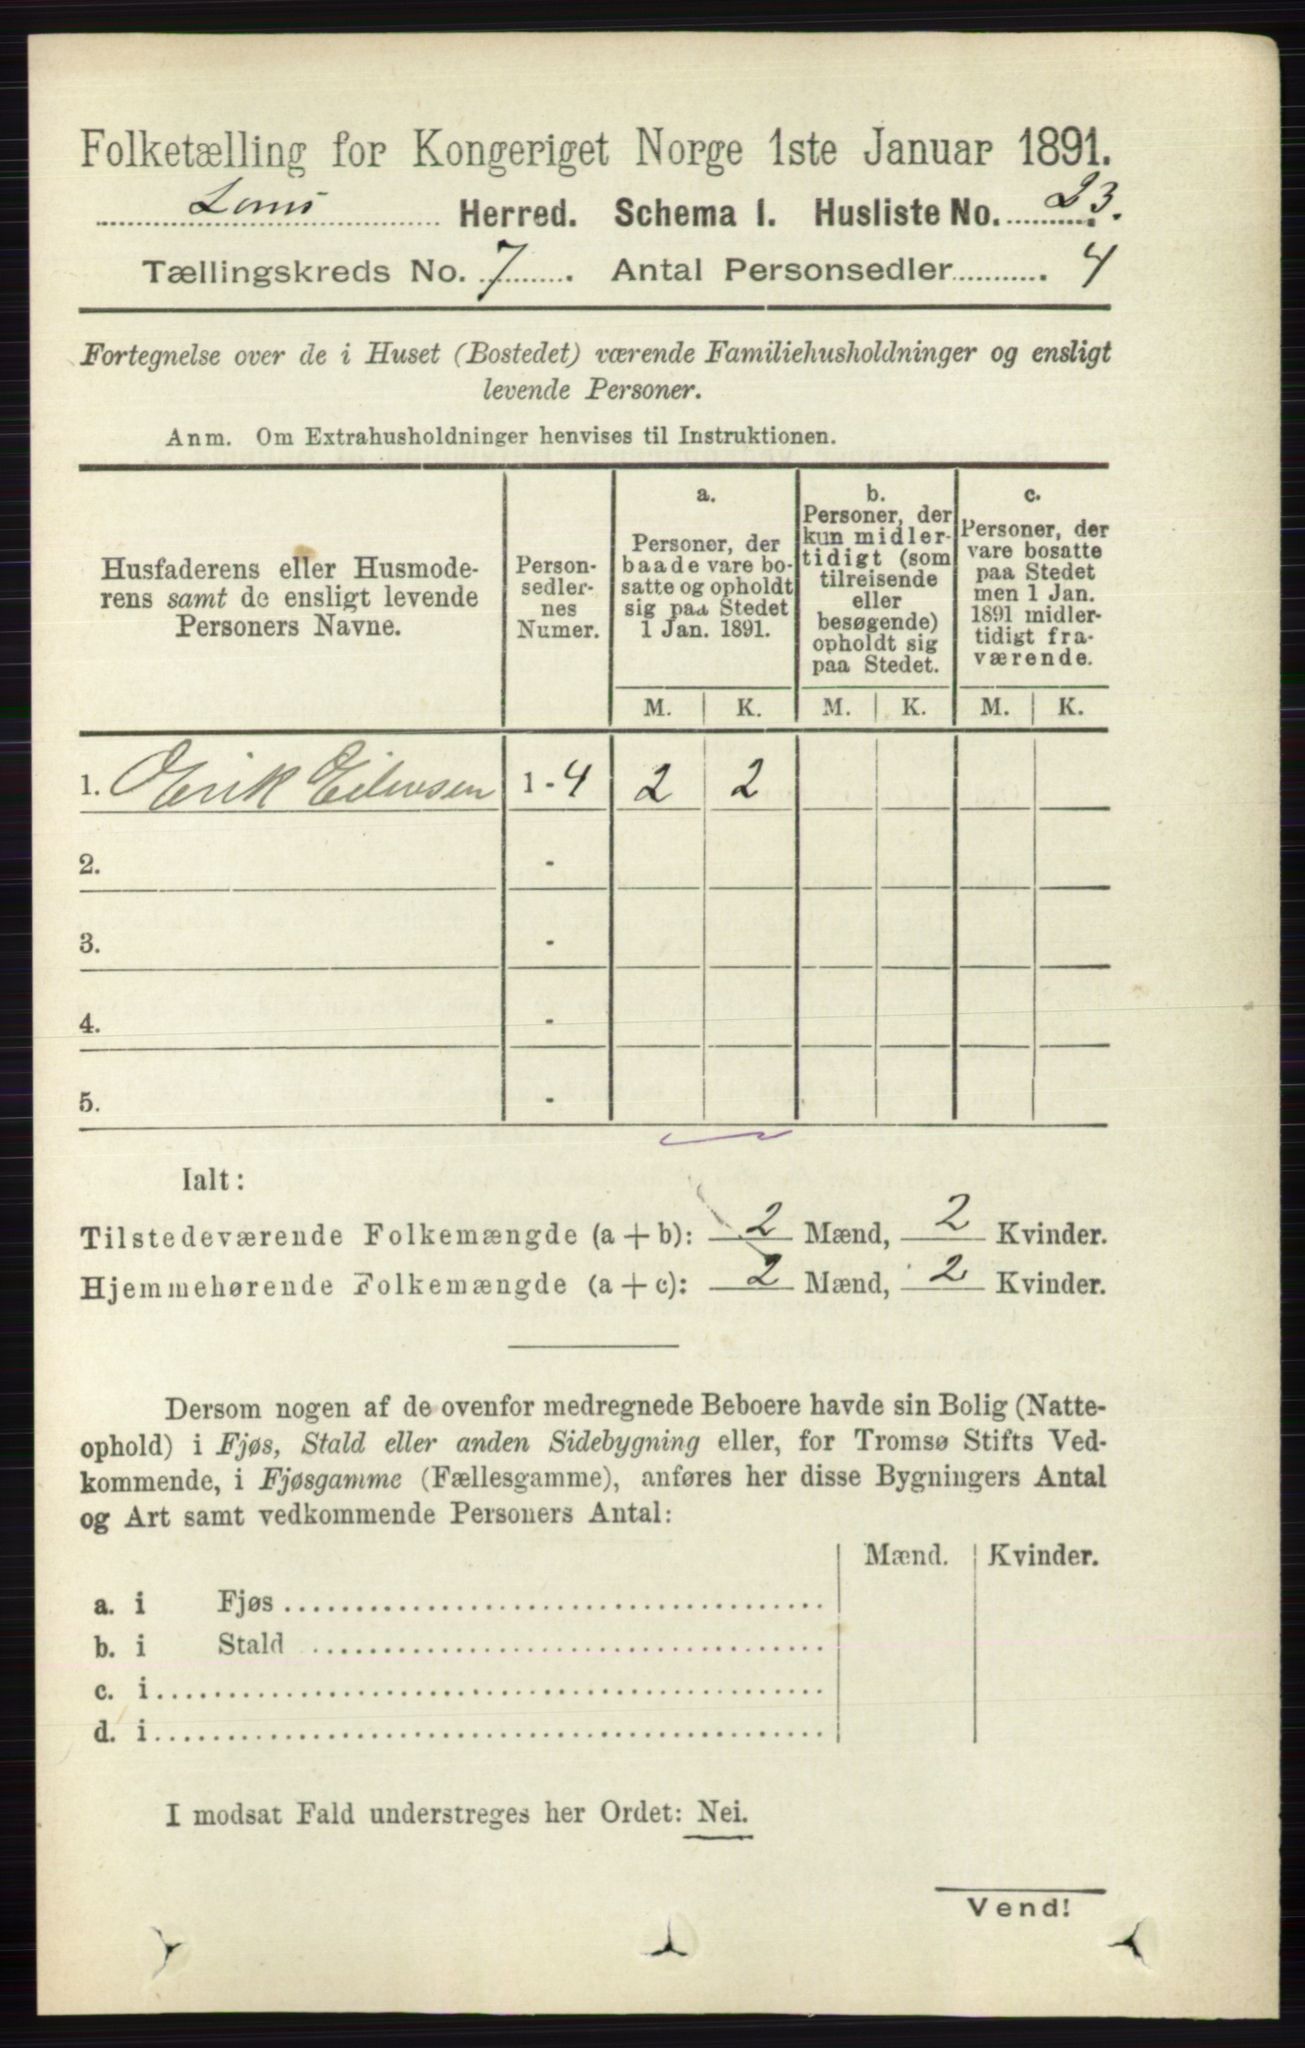 Folketælling for Kongeriget Norge 1ste Januar 1891.
Loms Herred. Schema I. Husliste No. 23.
Tællingskreds No. 7. Antal Personsedler 4
Fortegnelse over de i Huset (Bostedet) værende Familiehusholdninger og ensligt
levende Personer.
Anm. Om Extrahusholdninger henvises til Instruktionen.
Husfaderens eller Husmode-
rens samt de ensligt levende
Personers Navne.
Person-
sedler-
nes
Numer.
a.
Personer, der
baade vare bo-
satte og opholdt
sig paa Stedet
1 Jan. 1891.
b.
Personer, der
kun midler-
tidigt (som
tilreisende
eller
besøgende)
opholdt sig
paa Stedet.
c.
Personer, der
vare bosatte
paa Stedet
men 1 Jan.
1891 midler-
tidigt fra-
værende.
M. K. M. K. M. K.
1. Erik 1 - 4 2 2
2. -
3. -
4. -
5. -
Ialt:
Tilstedeværende Folkemængde (a + b): 2 Mænd, 2 Kvinder.
Hjemmehørende Folkemængde (a + c): 2 Mænd, 2 Kvinder.
Dersom nogen af de ovenfor medregnede Beboere havde sin Bolig (Natte-
ophold) i Fjøs, Stald eller anden Sidebygning eller, for Tromsø Stifts Ved-
kommende, i Fjøsgamme (Fællesgamme), anføres her disse Bygningers Antal
og Art samt vedkommende Personers Antal:
Mænd. Kvinder.
a. i Fjøs
b. i Stald
c. i
d. i
I modsat Fald understreges her Ordet: Nei.
Vend!